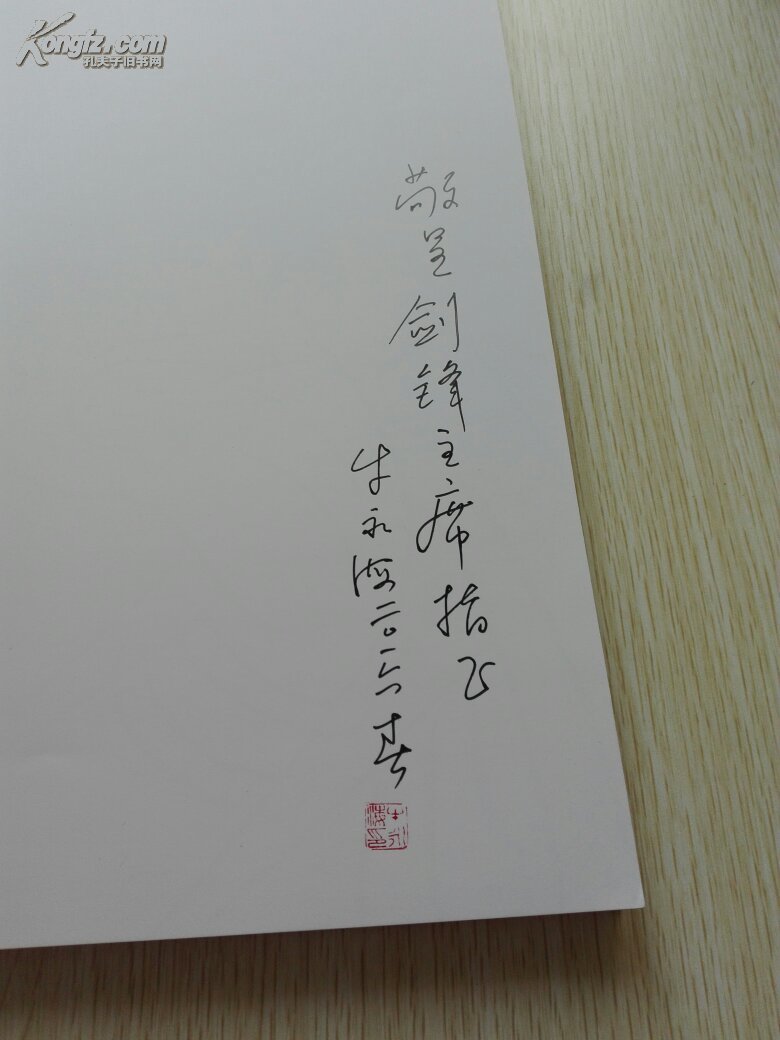 Kongfz.com
孔夫子旧书网
敬呈剑锋主席指正
牛永海二〇一六春